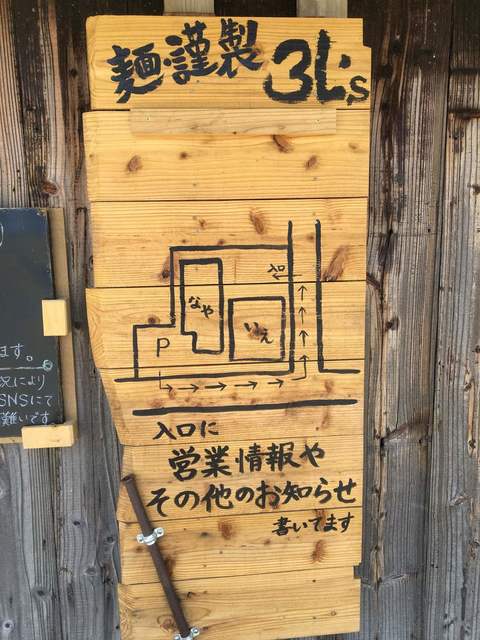 麺・謹製 3L's
入口
なや
いえ
P
入口に
営業情報や
その他のお知らせ
書いてます
ます。
況により
SNSにて
難いです